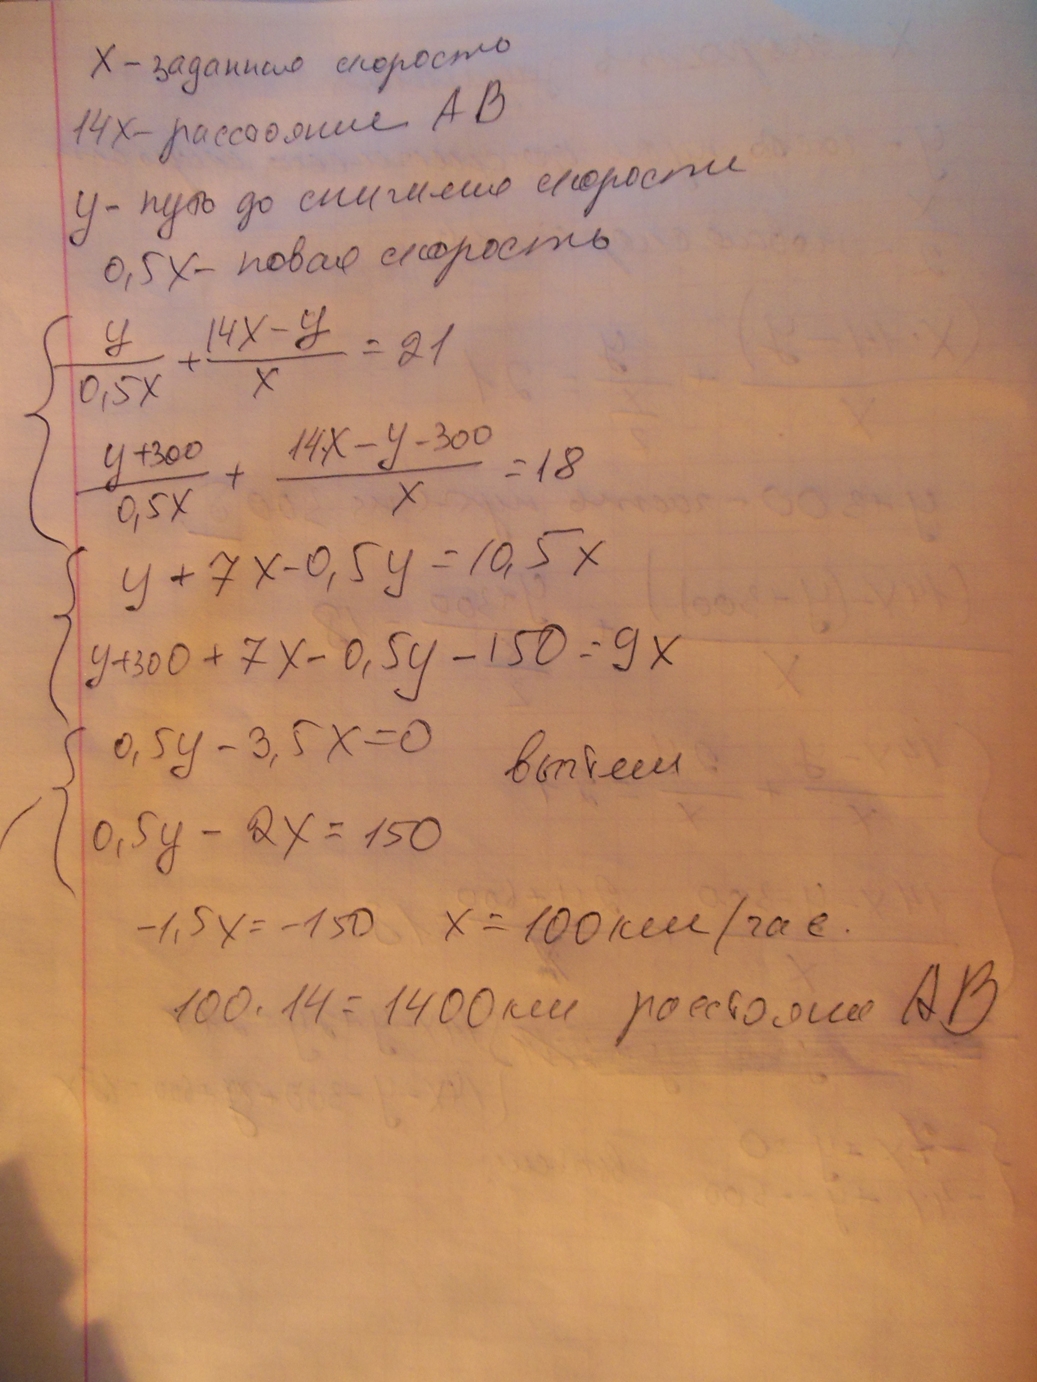 x - заданная скорость
14x - расстояние AB
y - путь до снижения скорости
0,5x - новая скорость
y/0,5x + 14x-y/x = 21
y+300/0,5x + 14x-y-300/x = 18
y + 7x - 0,5y = 10,5x
y+300 + 7x - 0,5y - 150 = 9x
0,5y - 3,5x = 0
вычтем
0,5y - 2x = 150
-1,5x = -150 x = 100 км/час.
100 · 14 = 1400 км расстояние AB